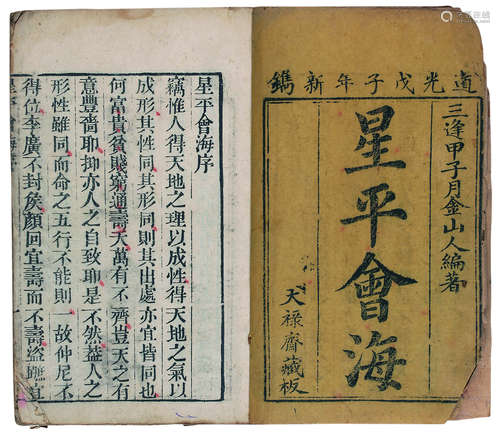 道光戊子年新鐫
三逢甲子月金山人編著
星平會海
天祿齋藏板
星平會海序
竊惟人得天地之理以成性得天地之氣以
成形其性同其形同則其出處亦宜皆同也
何富貴貧賤窮通壽夭萬有不齊豈天之有
意豐嗇耶抑亦人之自致耶是不然葢人之
形性雖同而命之五行不能則一故仲尼不
得位李廣不封侯顏回宜壽而不壽盜蹠宜